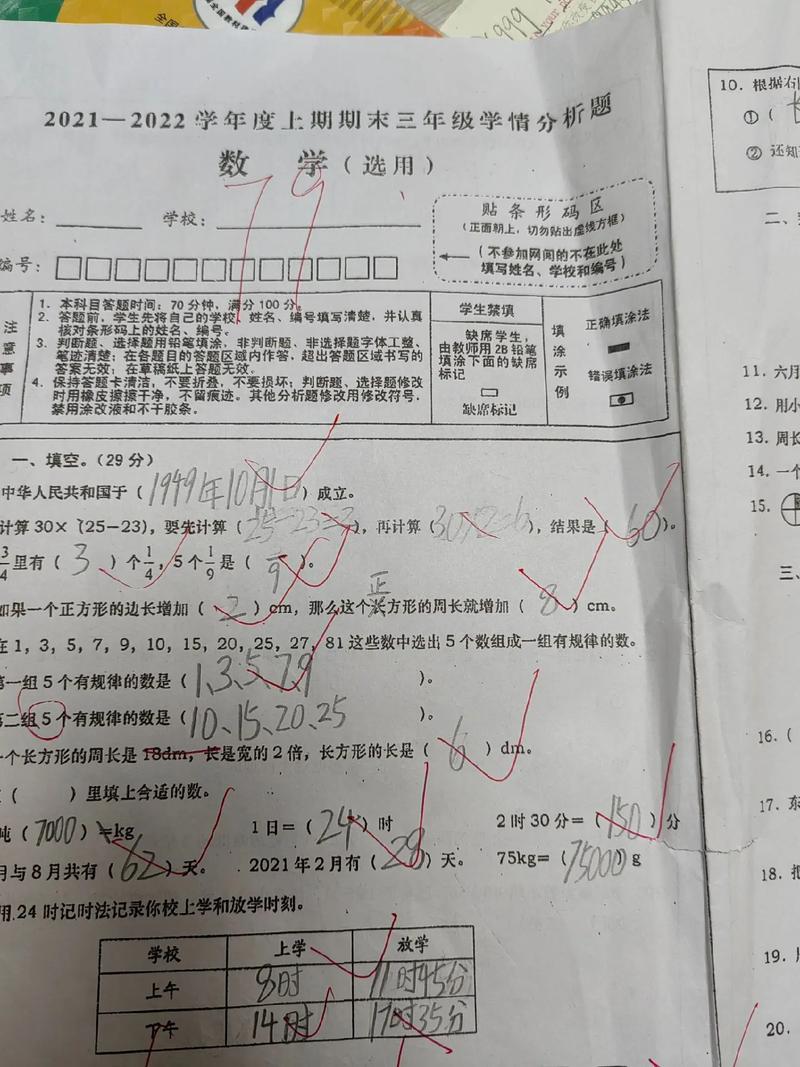 2021—2022 学年度上期期末三年级学情分析题
数 学（选用）
79
姓名： 学校：
编号：
贴 条 形 码 区
（正面朝上，切勿贴出虚线方框）
（不参加网阅的不在此处
填写姓名、学校和编号）
注意事项
1. 本科目答题时间：70 分钟，满分 100 分。
2. 答题前，学生先将自己的学校、姓名、编号填写清楚，并认真
核对条形码上的姓名、编号。
3. 判断题、选择题用铅笔填涂，非判断题、非选择题字体工整、
笔迹清楚；在各题目的答题区域内作答，超出答题区域书写的
答案无效；在草稿纸上答题无效。
4. 保持答题卡清洁，不要折叠，不要损坏；判断题、选择题修改
时用橡皮擦擦干净，不留痕迹。其他分析题修改用修改符号，
禁用涂改液和不干胶条。
学生禁填
缺席学生，
由教师用 2B 铅笔
填涂下面的缺席
标记
缺席标记
填涂示例
正确填涂法
错误填涂法
一、填空。（29 分）
中华人民共和国于（1949年10月1日）成立。
计算 30×（25−23），要先计算（25−23=2），再计算（30×2=6），结果是（60）。
3/4 里有（3）个 1/4，5 个 1/9 是（ 9）。
如果一个正方形的边长增加（2）cm，那么这个长正方形的周长就增加（8）cm。
在 1，3，5，7，9，10，15，20，25，27，81 这些数中选出 5 个数组成一组有规律的数。
第一组 5 个有规律的数是（1、3、5、7、9）。
第二组 5 个有规律的数是（10、15、20、25）。
一个长方形的周长是 18dm，长是宽的 2 倍，长方形的长是（6）dm。
（ ）里填上合适的数。
吨（7000）kg 1 日＝（24）时 2 时 30 分＝（150）分
月与 8 月共有（62）天。 2021 年 2 月有（28）天。 75kg＝（75000）g
用 24 时记时法记录你校上学和放学时刻。
学校 上学 放学
上午 8时 11时45分
下午 14时 17时35分
10. 根据右
①（
② 还知
二、
11. 六月
12. 用小
13. 周长
14. 一个
15.
三、
16.（
17. 东
18. 把
19.
20.